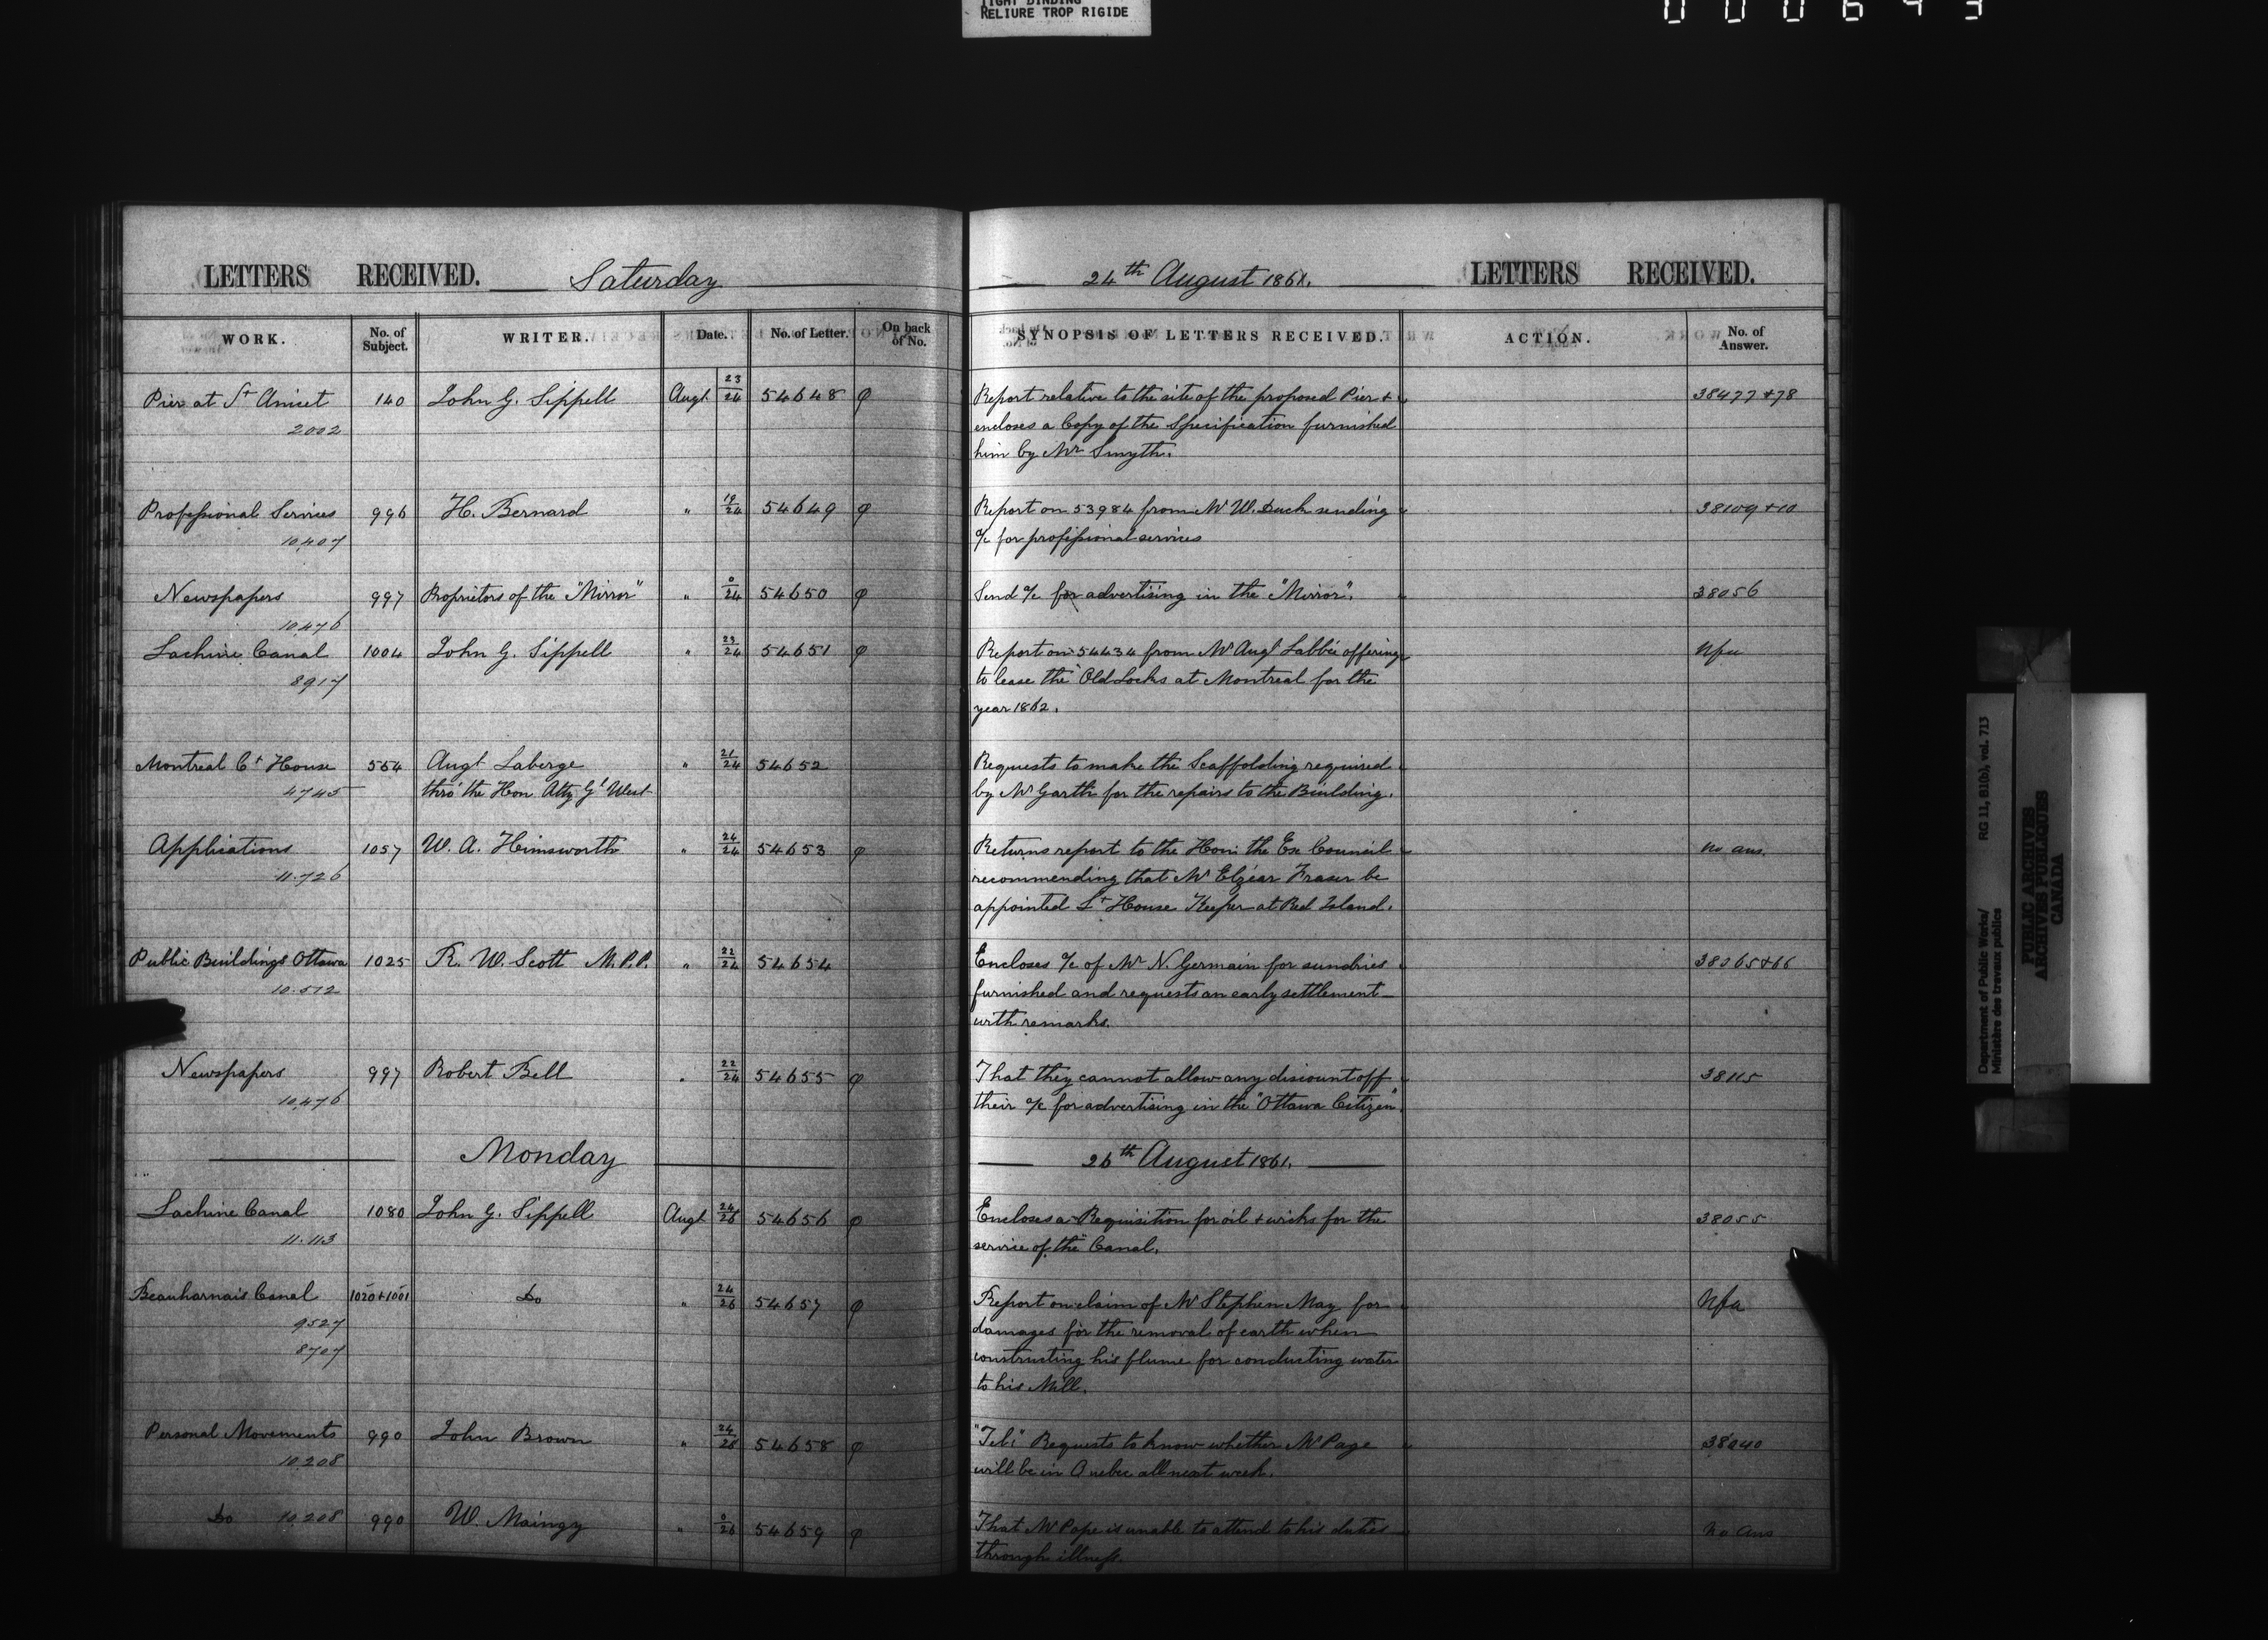 TIGHT BINDING
RELIURE TROP RIGIDE
000643
LETTERS RECEIVED. Saturday
24th August 1861. LETTERS RECEIVED.
WORK. No. of Subject. WRITER. Date. No. of Letter. On back of No. SYNOPSIS OF LETTERS RECEIVED. ACTION. No. of Answer.
Pier at St Anicet 140 John G. Sippell Augt 23/24 54648 φ Report relative to the site of the proposed Pier + 38477+78
2002 encloses a Copy of the Specification furnished
him by Mr Smyth.
Professional Services 996 H. Bernard " 19/24 54649 φ Report on 53984 from Mr W. Duck sending 38109+10
10,407 a/c for professional services
Newspapers 997 Proprietors of the "Mirror" " 0/24 54650 φ Send a/c for advertising in the "Mirror". 38056
10,476
Lachine Canal 1004 John G. Sippell " 23/24 54651 φ Report on 54434 from Mr Augt Labbée offering Nfa
8917 to lease the Old Locks at Montreal for the
year 1862.
Montreal Ct House 554 Augt Laberge " 21/24 54652 Requests to make the Scaffolding required
4745 thro' the Hon Atty Gl West by Mr Garth for the repairs to the Building.
Applications 1057 W. A. Himsworth " 24/24 54653 φ Returns report to the Hon: the Ex Council no ans.
11.726 recommending that Mr Elzéar Fraser be
appointed Lt House Keeper at Red Island.
Public Buildings Ottawa 1025 R. W. Scott M.P.P. " 22/24 54654 Encloses a/c of Mr N. Germain for sundries 38065+66
10.512 furnished and requests an early settlement
with remarks.
Newspapers 997 Robert Bell " 22/24 54655 φ That they cannot allow any discount off 38115
10,476 their a/c for advertising in the "Ottawa Citizen".
Monday 26th August 1861.
Lachine Canal 1080 John G. Sippell Augt 24/26 54656 φ Encloses a Requisition for oil + wicks for the 38055
11.113 service of the Canal.
Beauharnais Canal 1020+1001 Do " 24/26 54657 φ Report on claim of Mr Stephen May for Nfa
9527 damages for the removal of earth when
8707 constructing his flume for conducting water
to his Mill.
Personal Movements 990 John Brown " 24/26 54658 φ "Tel:" Requests to know whether Mr Page 38040
10,208 will be in Quebec all next week.
Do 10,208 990 W. Maingy " 0/26 54659 φ That Mr Pope is unable to attend to his duties No Ans
through illness.
Department of Public Works/ RG 11, B1(b), vol. 713
Ministère des travaux publics
PUBLIC ARCHIVES
ARCHIVES PUBLIQUES
CANADA